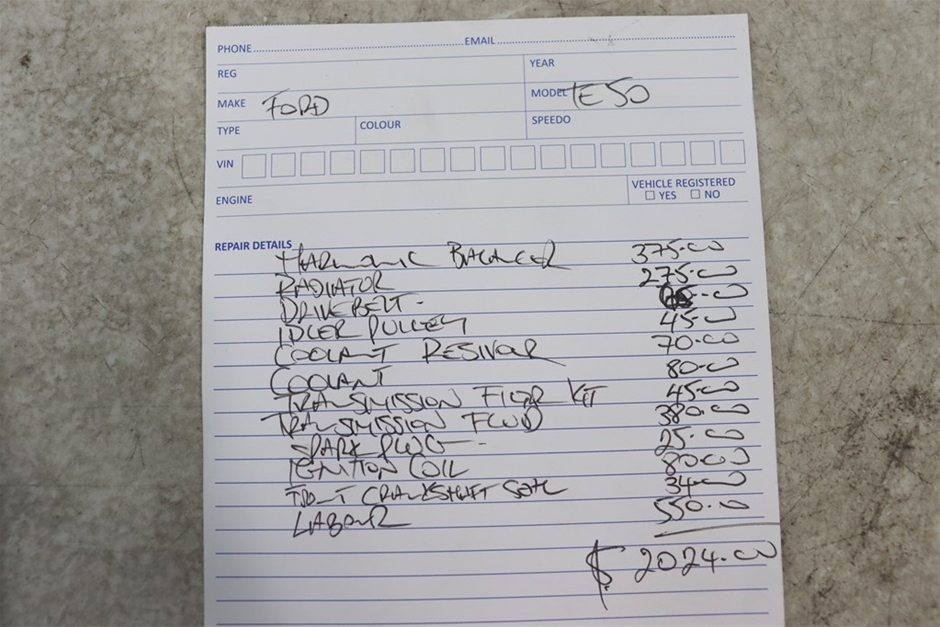 PHONE EMAIL
REG YEAR
MAKE FORD MODEL TE50
TYPE COLOUR SPEEDO
VIN
ENGINE VEHICLE REGISTERED
YES NO
REPAIR DETAILS
HARMONIC BALANCER 375.00
RADIATOR 275.00
DRIVE BELT -
IDLER PULLEY 45.00
COOLANT RESIVOUR 70.00
COOLANT 80.00
TRANSMISSION FILTER KIT 45.00
TRANSMISSION FLUID 380.00
SPARK PLUG - 25.00
IGNITION COIL 80.00
FRONT CRANKSHAFT SEAL 34.00
LABOUR 550.00
$ 2024.00